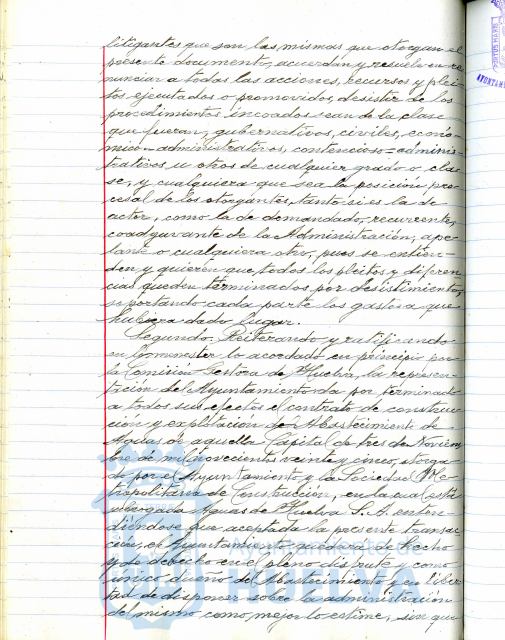 litigantes que son las mismas que otorgan el
presente documento, acuerdan y resuelven re
nunciar a todas las acciones, recursos y plei
tos ejecutados o promovidos, desistir de los
procedimientos incoados sean de la clase
que fueran, gubernativos, civiles, econó
mico-administrativos, contencioso-adminis
trativos u otros de cualquier grado o cla
se, y cualquiera que sea la posición pro
cesal de los otorgantes, tanto si es la de
actor, como la de demandado, recurrente,
coadyuvante de la Administración, ape
lante o cualquiera otro, pues se entien
den y quieren que todos los pleitos y diferen
cias queden terminados por desistimiento,
soportando cada parte los gastos a que
hubiera dado lugar.
Segundo. Reiterando y ratificando
en lo menester lo acordado en principio por
la Comisión Gestora de Huelva, la represen
tación del Ayuntamiento da por terminado
a todos sus efectos el contrato de construc
ción y explotación del Abastecimiento de
Aguas de aquella Capital de tres de Noviem
bre de mil novecientos veinte y cinco, otorga
do por el Ayuntamiento y la Sociedad Me
tropolitana de Construcción, en la cual está
subrogada Aguas de Huelva S. A. enten
diéndose que aceptada la presente transac
ción, el Ayuntamiento quedará de hecho
y de derecho en el pleno disfrute y como
único dueño del Abastecimiento y en liber
tad de disponer sobre la administración
del mismo como mejor lo estime, sin que
Ayuntamiento de
HUELVA
AYUNTAM